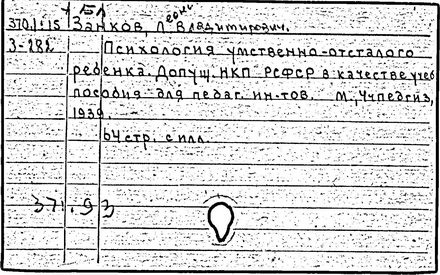 + БЛ
370.1:15 Занков, Леонид Владимирович.
З-282 Психология умственно-отсталого
ребенка. Допущ. НКП РСФСР в качестве учеб.
пособия для педаг. ин-тов. М., Учпедгиз,
1939.
64 стр. с илл.
371.93